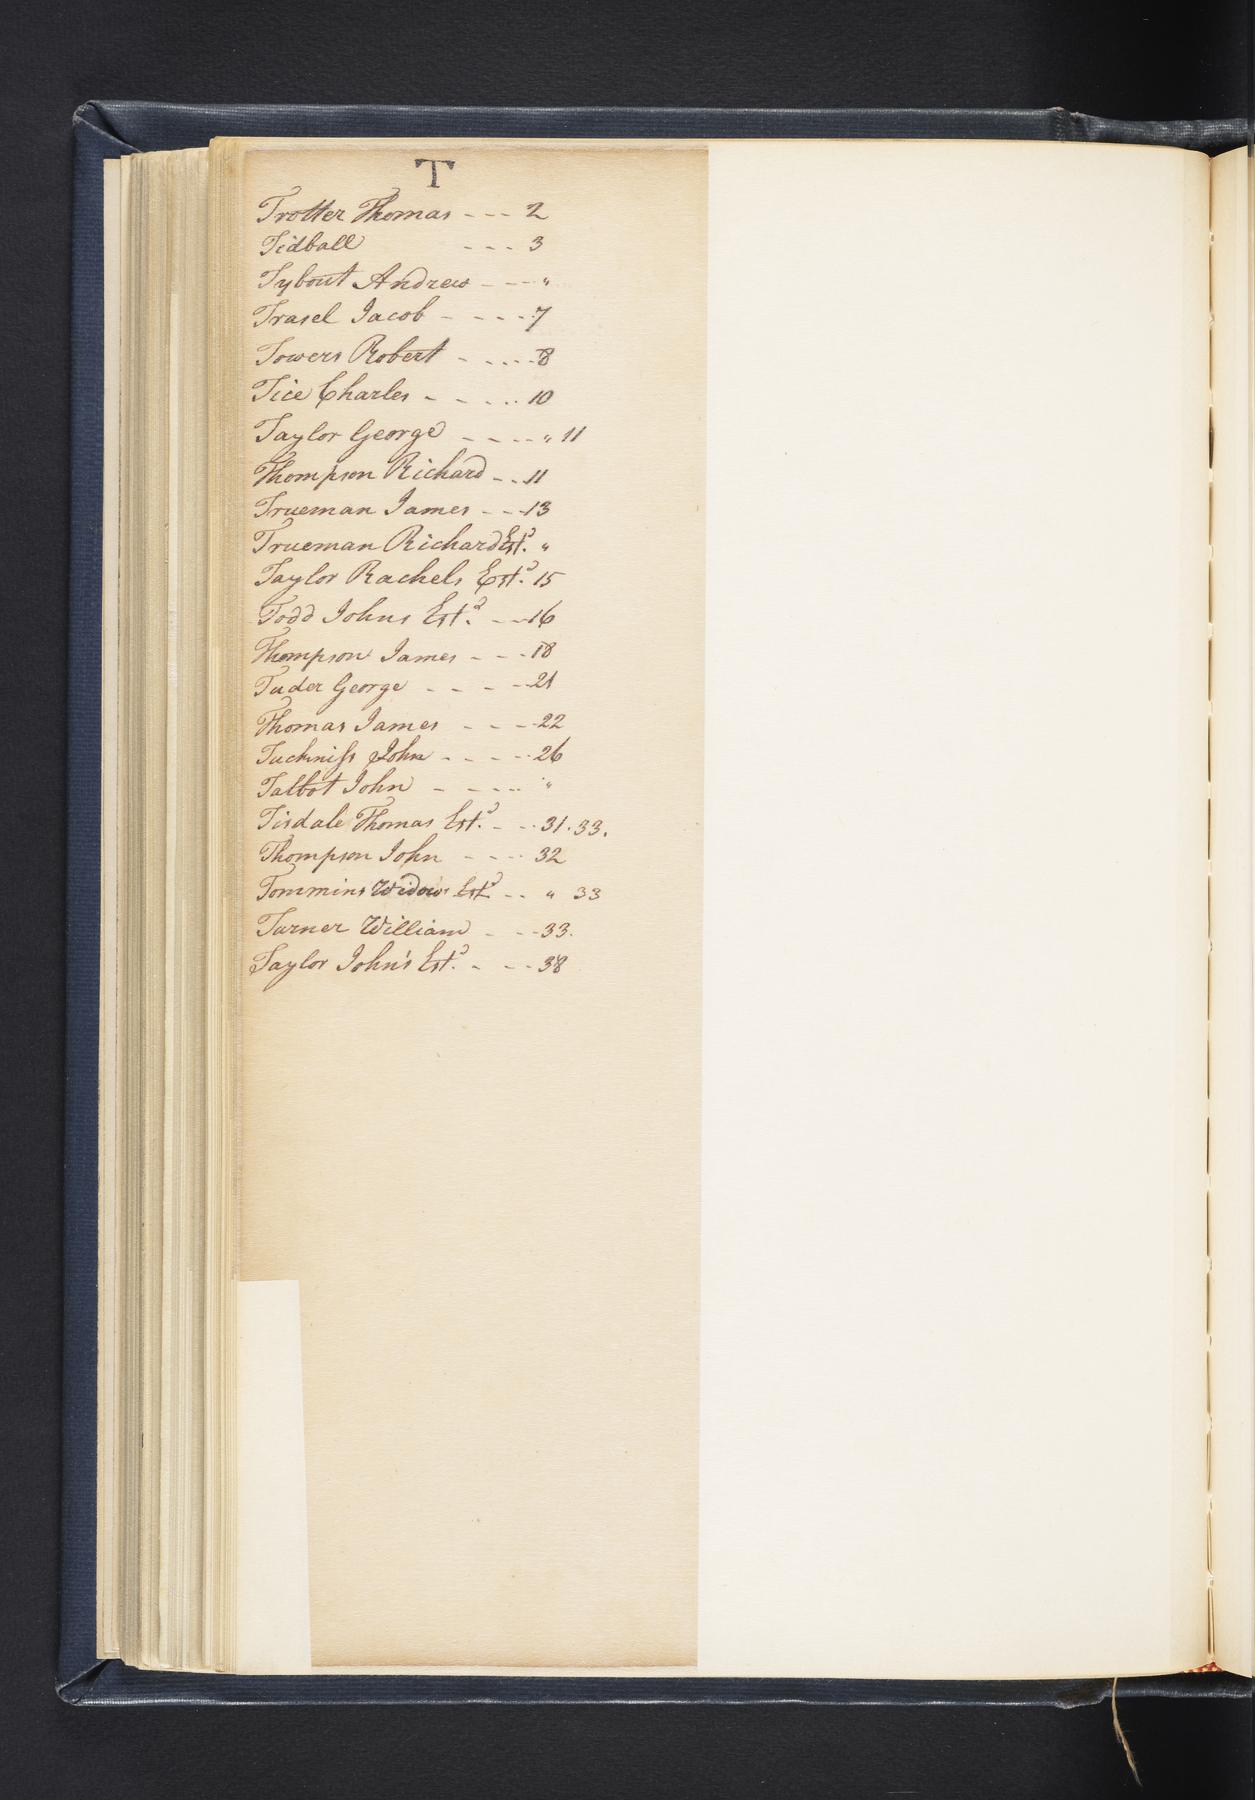 T
Trotter Thomas - - - 2
Tidball - - - 3
Tybout Andrew - - - "
Trasel Jacob - - - - 7
Towers Robert - - - - 8
Tice Charles - - - - - 10
Taylor George - - - - " 11
Thompson Richard - - 11
Trueman James - - - 13
Trueman Richard Est.d "
Taylor Rachels Est.d 15
Todd Johns Est.d - - - 16
Thompson James - - - 18
Tuder George - - - - 21
Thomas James - - - - 22
Tuckniss John - - - - - 26
Talbot John - - - - "
Tisdale Thomas Est.d - - - 31. 33.
Thompson John - - - - 32
Tommins Widows Est.d - - " 33
Turner William - - - 33.
Taylor John's Est.d - - - 38